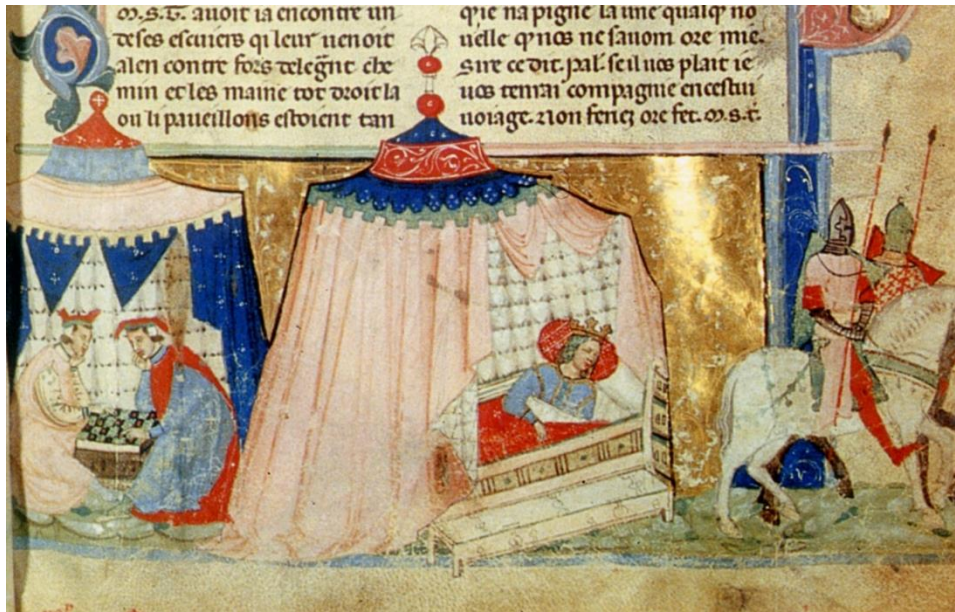 M.S.T. auoit ia encontre un
de ses escuiers qi leur uenoit
alen contre fors delegñt che
min et les maine tot droit la
ou li paueillons estoient tan
la une qualqe no
uelle qe nos ne sauom ore mie.
Sire ce dit .pal. se il uos plait ie
uos tenrai compagnie en cestui
uoiage. non ferez ore fet. M.S.T.